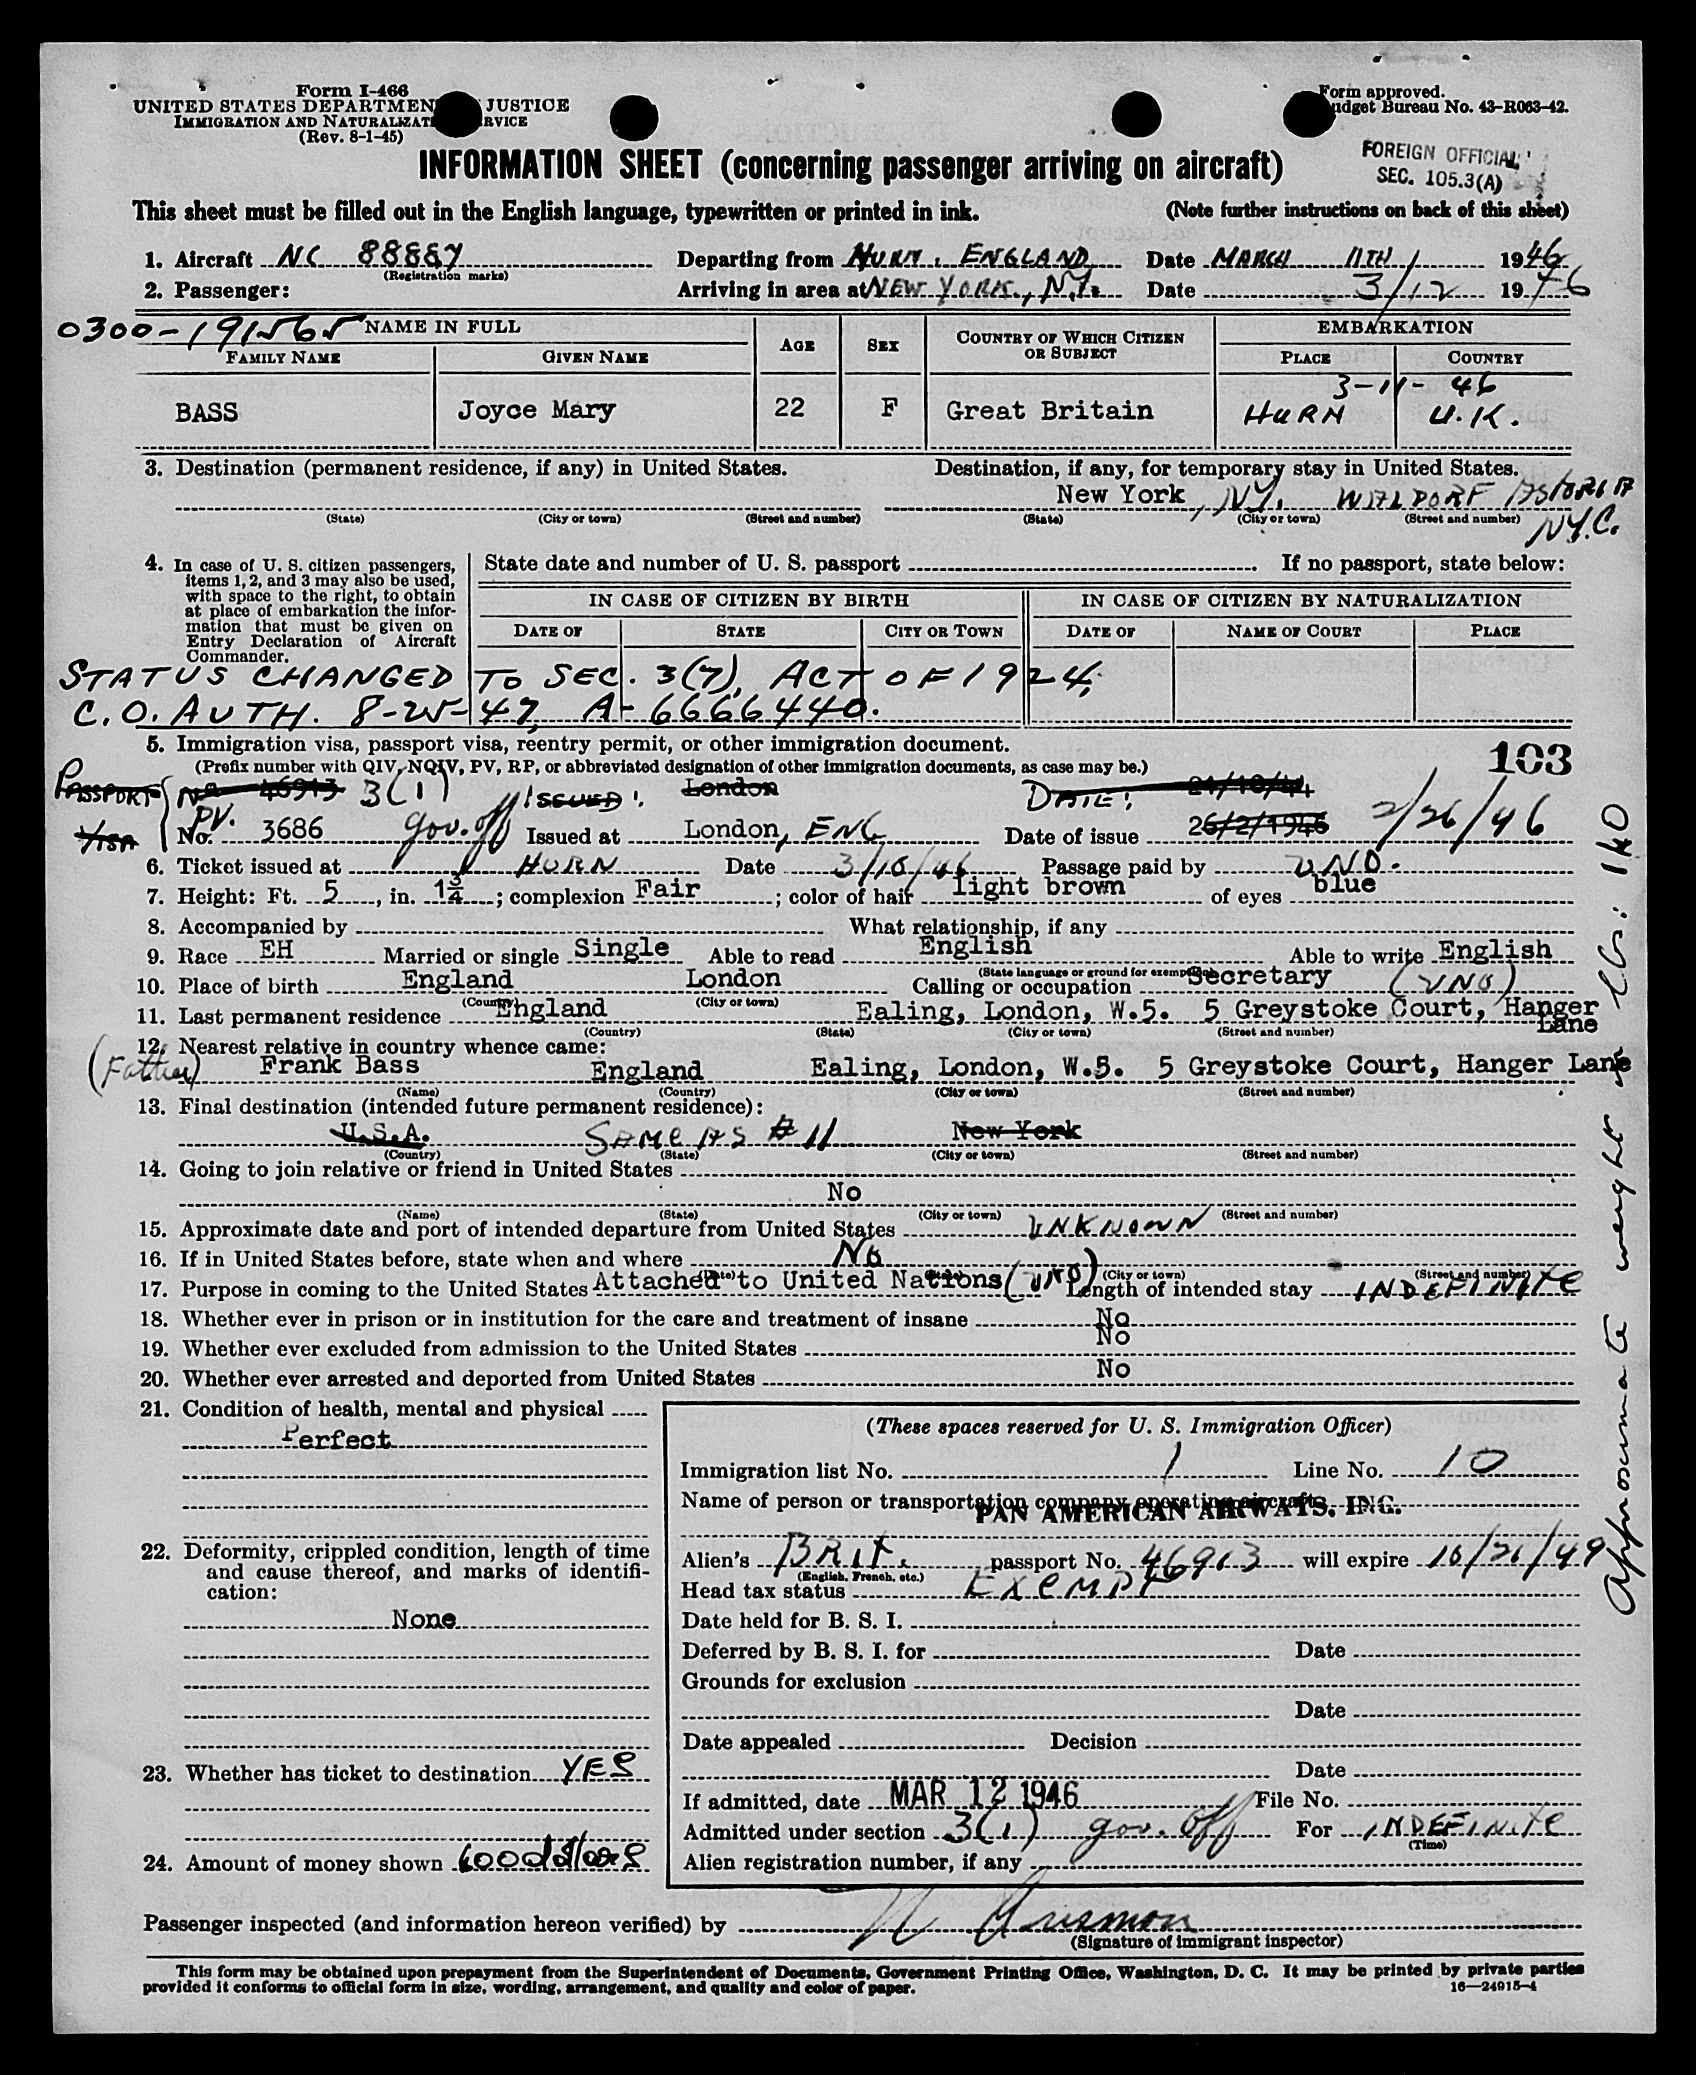 Form I-466
UNITED STATES DEPARTMEN JUSTICE
IMMIGRATION AND NATURALIZAT RVICE
(Rev. 8-1-45)
Form approved.
udget Bureau No. 43-R063-42.
FOREIGN OFFICIAL
SEC. 105.3(A)
INFORMATION SHEET (concerning passenger arriving on aircraft)
This sheet must be filled out in the English language, typewritten or printed in ink. (Note further instructions on back of this sheet)
1. Aircraft NC 88887 Departing from HURN, ENGLAND Date MARCH 11TH 1946
(Registration marks)
2. Passenger: Arriving in area at NEW YORK, N.Y. Date 3/12 1946
0300-191565 NAME IN FULL AGE SEX COUNTRY OF WHICH CITIZEN OR SUBJECT EMBARKATION
FAMILY NAME GIVEN NAME PLACE COUNTRY
3-11-46
BASS Joyce Mary 22 F Great Britain HURN U.K.
3. Destination (permanent residence, if any) in United States. Destination, if any, for temporary stay in United States.
New York, N.Y. WALDORF ASTORIA
(State) (City or town) (Street and number) (State) (City or town) (Street and number)
N.Y.C.
4. In case of U. S. citizen passengers, items 1, 2, and 3 may also be used, with space to the right, to obtain at place of embarkation the information that must be given on Entry Declaration of Aircraft Commander.
State date and number of U. S. passport If no passport, state below:
IN CASE OF CITIZEN BY BIRTH IN CASE OF CITIZEN BY NATURALIZATION
DATE OF STATE CITY OR TOWN DATE OF NAME OF COURT PLACE
STATUS CHANGED TO SEC. 3(7), ACT OF 1924,
C.O. AUTH. 8-25-47, A-6666440.
5. Immigration visa, passport visa, reentry permit, or other immigration document. 103
(Prefix number with QIV, NQIV, PV, RP, or abbreviated designation of other immigration documents, as case may be.)
PASSPORT No 46913 3(1) ISSUED: London DATE: 21/10/44
VISA No. PV. 3686 gov. off Issued at London, ENG Date of issue 26/2/1946 2/26/46
6. Ticket issued at HURN Date 3/10/46 Passage paid by UNO.
7. Height: Ft. 5, in. 1 3/4; complexion Fair; color of hair light brown of eyes blue
8. Accompanied by What relationship, if any
9. Race EH Married or single Single Able to read English Able to write English
(State language or ground for exemption)
10. Place of birth England London Calling or occupation Secretary (UNO)
(Country) (City or town)
11. Last permanent residence England Ealing, London, W.5. 5 Greystoke Court, Hanger Lane
(Country) (State) (City or town) (Street and number)
12. Nearest relative in country whence came:
(Father) Frank Bass England Ealing, London, W.5. 5 Greystoke Court, Hanger Lane
(Name) (Country) (City or town) (Street and number)
13. Final destination (intended future permanent residence):
U.S.A. SAME AS # 11 New York
(Country) (State) (City or town) (Street and number)
14. Going to join relative or friend in United States
No
(Name) (State) (City or town) (Street and number)
15. Approximate date and port of intended departure from United States UNKNOWN
16. If in United States before, state when and where NO
(City or town) (Street and number)
17. Purpose in coming to the United States Attached to United Nations (UNO) Length of intended stay INDEFINITE
18. Whether ever in prison or in institution for the care and treatment of insane No
19. Whether ever excluded from admission to the United States No
20. Whether ever arrested and deported from United States No
21. Condition of health, mental and physical
Perfect
22. Deformity, crippled condition, length of time and cause thereof, and marks of identification:
None
23. Whether has ticket to destination YES
24. Amount of money shown 600 dollars
(These spaces reserved for U. S. Immigration Officer)
Immigration list No. 1 Line No. 10
Name of person or transportation company operating aircraft
PAN AMERICAN AIRWAYS, INC.
Alien's BRIT. passport No. 46913 will expire 10/21/49
(English, French, etc.)
Head tax status EXEMPT
Date held for B. S. I.
Deferred by B. S. I. for Date
Grounds for exclusion
Date
Date appealed Decision
Date
If admitted, date MAR 12 1946 File No.
Admitted under section 3(1) gov. off For INDEFINITE
(Time)
Alien registration number, if any
Passenger inspected (and information hereon verified) by
(Signature of immigrant inspector)
This form may be obtained upon prepayment from the Superintendent of Documents, Government Printing Office, Washington, D. C. It may be printed by private parties
provided it conforms to official form in size, wording, arrangement, and quality and color of paper. 16—24915-4
Approximate weight in LBS: 140